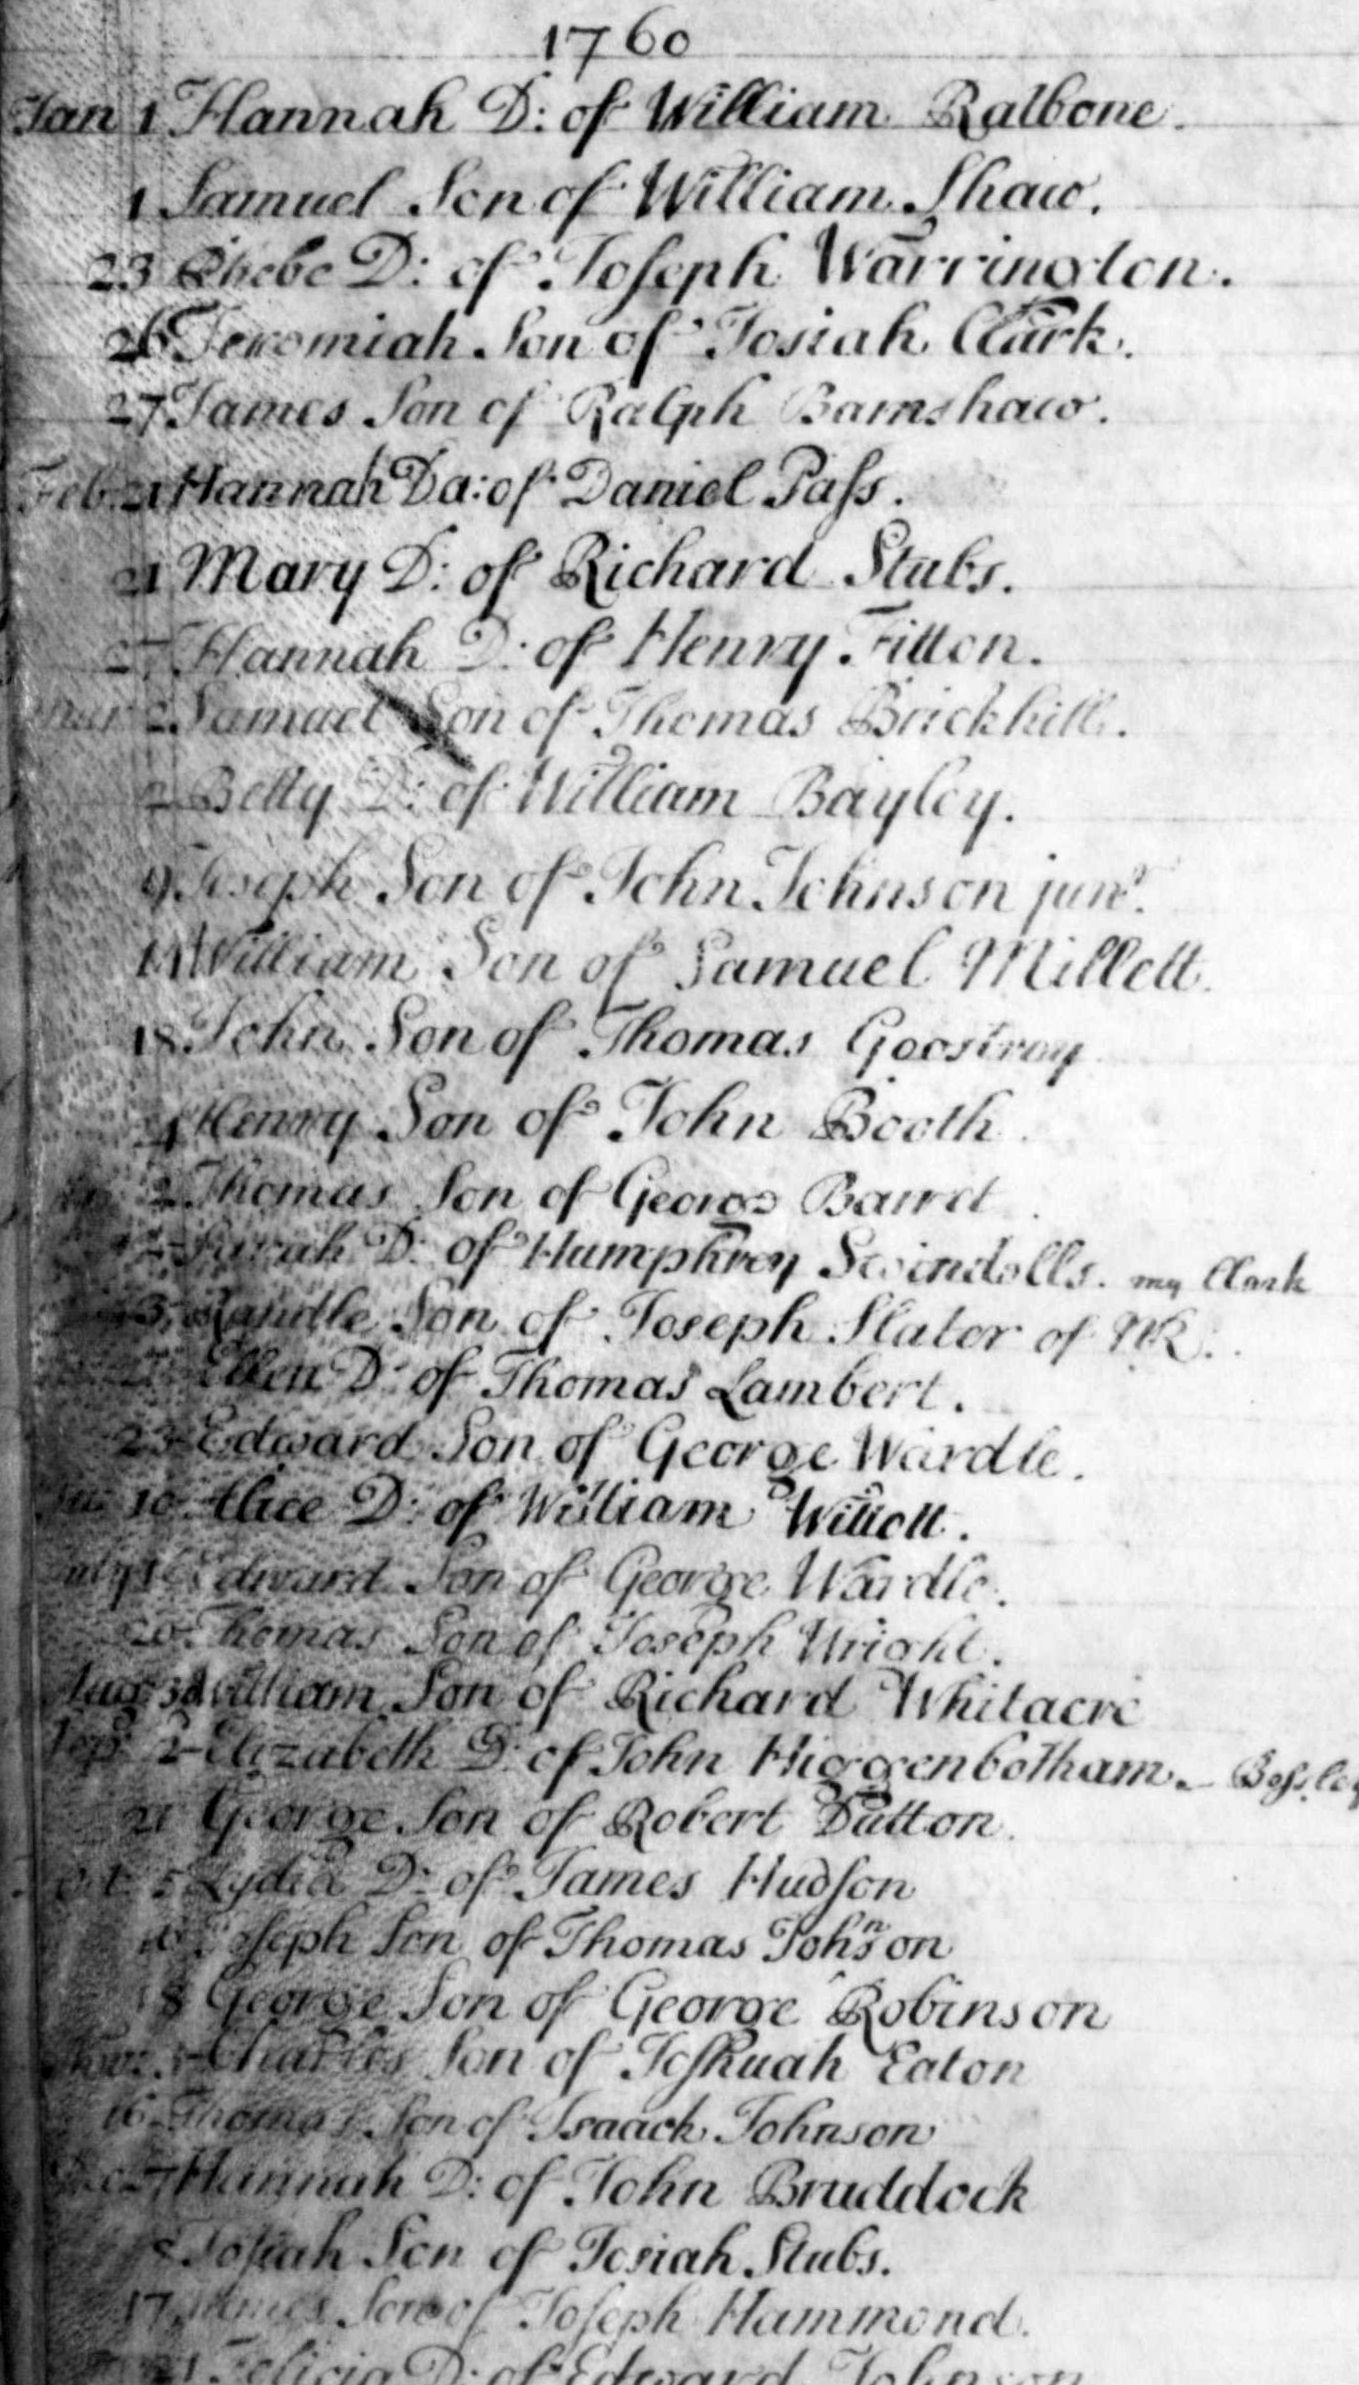 1760
Jan 1 Hannah D: of William Ratbone.
1 Samuel Son of William Shaw.
23 Phebe D: of Joseph Warrington.
26 Jeremiah Son of Josiah Clark.
27 James Son of Ralph Barnshaw.
Feb. 21 Hannah Da: of Daniel Pass.
21 Mary D: of Richard Stubs.
27 Hannah D: of Henry Fitton.
Mar 2 Samuel Son of Thomas Brickhill.
2 Betty D: of William Bayley.
9 Joseph Son of John Johnson junr.
William Son of Samuel Millett.
18 John Son of Thomas Goostray
Henry Son of John Booth.
2 Thomas Son of George Barret.
Sarah D: of Humphrey Swindells. my Clark
3 Randle Son of Joseph Slator of NR.
Ellen D: of Thomas Lambert.
23 Edward Son of George Wardle.
10 Alice D: of William Willott.
July Edward Son of George Wardle.
20 Thomas Son of Joseph Wright.
Aug William Son of Richard Whitacre
Sep 2 Elizabeth D: of John Higgenbotham. - Bossley
21 George Son of Robert Dutton.
Oct 5 Lydia D: of James Hudson
Joseph Son of Thomas Johnson
18 George Son of George Robinson
Nov: Charles Son of Joshuah Eaton
16 Thomas Son of Isaack Johnson
Dec 7 Hannah D: of John Bruddock
Josiah Son of Josiah Stubs.
17 James Son of Joseph Hammond.
21 Felicia D: of Edward Johnson